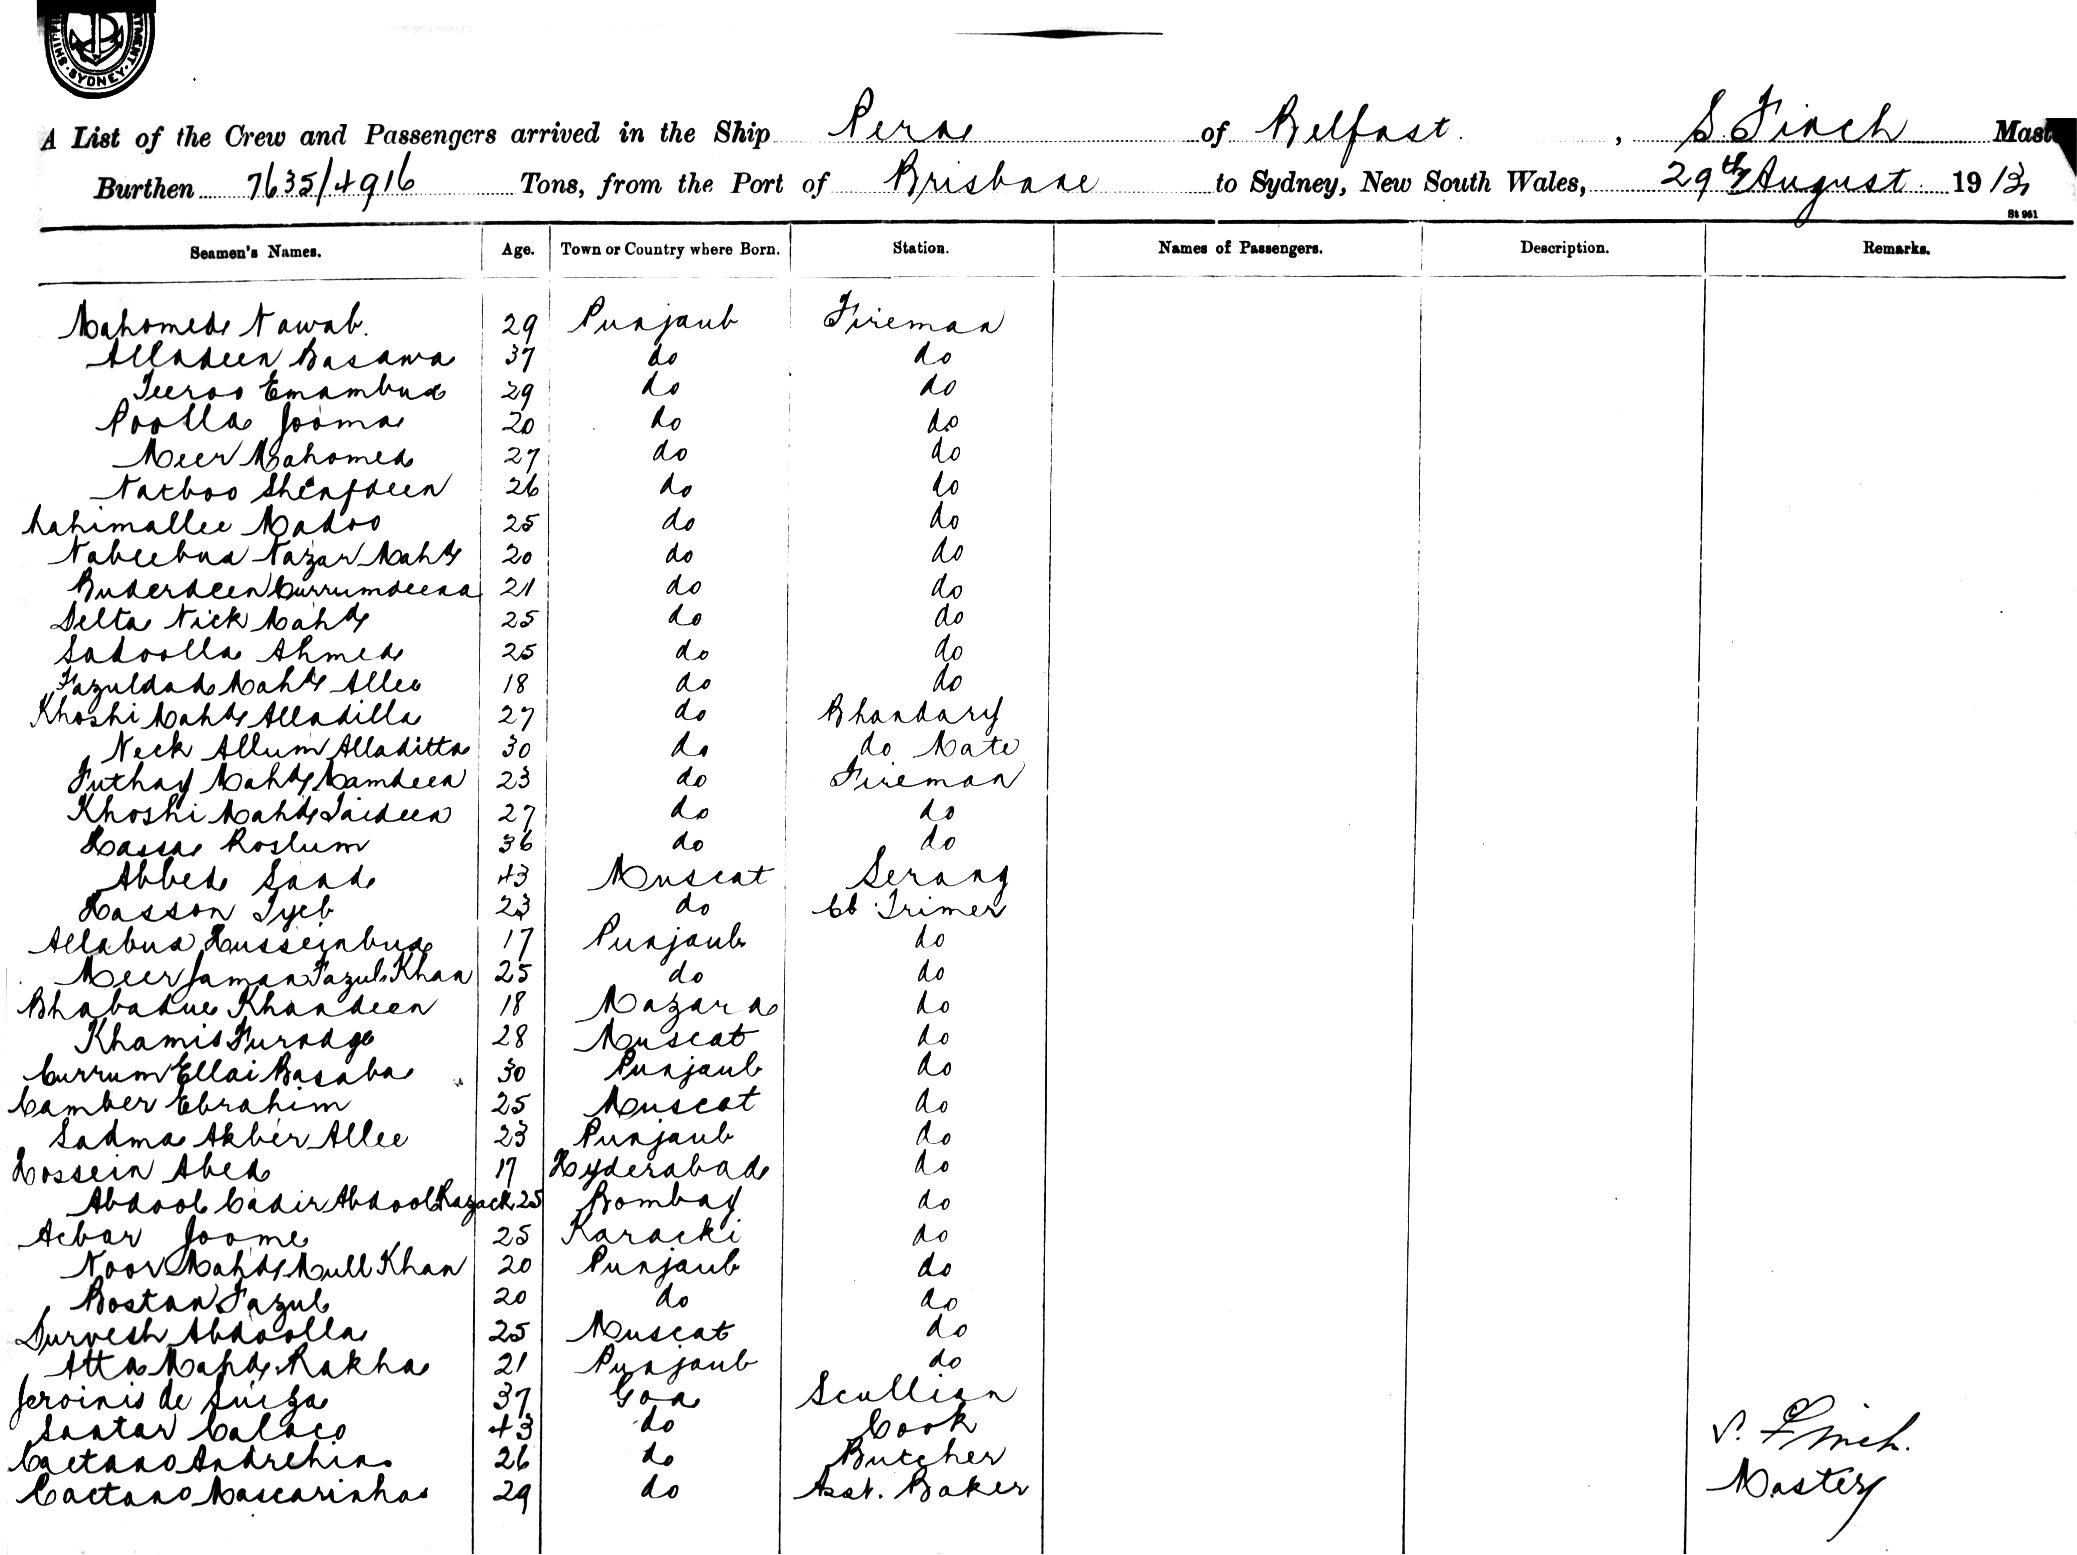 SHIPPING DEPARTMENT · SYDNEY ·
A List of the Crew and Passengers arrived in the Ship Perna of Belfast. , S. Finch Mast
Burthen 7635/4916 Tons, from the Port of Brisbane to Sydney, New South Wales, 29th August 1913
St 961
Seamen's Names. Age. Town or Country where Born. Station. Names of Passengers. Description. Remarks.
Mahomed Nawab. 29 Punjaub Fireman
Alladeen Basawa 37 do do
Feeroo Emambux 29 do do
Poolla Jooma 20 do do
Meer Mahomed 27 do do
Nathoo 26 do do
Rahimallee Madoo 25 do do
Nabeebux Nazar Mahd 20 do do
Buderdeen Currumdeena 21 do do
Ditta Nick Mahd 25 do do
Sadoolla Ahmed 25 do do
Fazuldad Mahd Allee 18 do do
Khoshi Mahd Alladilla 27 do Bhandary
Neck Allum Alladitta 30 do do Mate
Futhay Mahd Mamdeen 23 do Fireman
Khoshi Mahd Jaideen 27 do do
Hassa Roslum 36 do do
Abbed Saad 43 Muscat Serang
Hasson Tyeb 23 do Cb Trimer
Allabux Husseinbux 17 Punjaub do
Meer Jaman Fazul Khan 25 do do
Bhabadue Khandeen 18 Hazara do
Khamis Furadge 28 Muscat do
Currum Ellai Basaba 30 Punjaub do
Camber Ebrahim 25 Muscat do
Sadma Akber Allee 23 Punjaub do
Hossein Abed 17 Hyderabad do
Abdool Cadir Abdool Razack 25 Bombay do
Acbar Joome 25 Karacki do
Noor Mahd Mull Khan 20 Punjaub do
Bostan Fazul 20 do do
Durvesh Abdoolla 25 Muscat do
Atta Mahd Rakha 21 Punjaub do
Jeroinis de Suiza 37 Goa Scullian
Santar Calaco 43 do Cook S. Finch.
Caetano Andrehino 26 do Butcher
Caetano Mascarinhas 29 do Asst. Baker Master